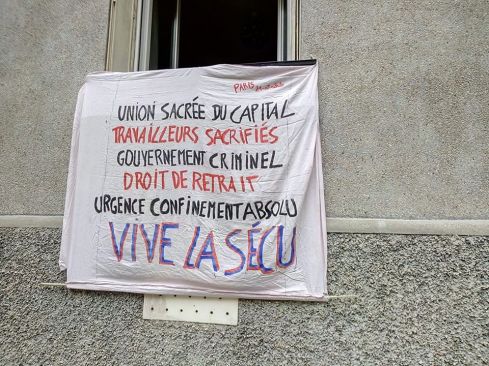 PARIS
UNION SACRÉE DU CAPITAL
TRAVAILLEURS SACRIFIÉS
GOUVERNEMENT CRIMINEL
DROIT DE RETRAIT
URGENCE CONFINEMENT ABSOLU
VIVE LA SÉCU